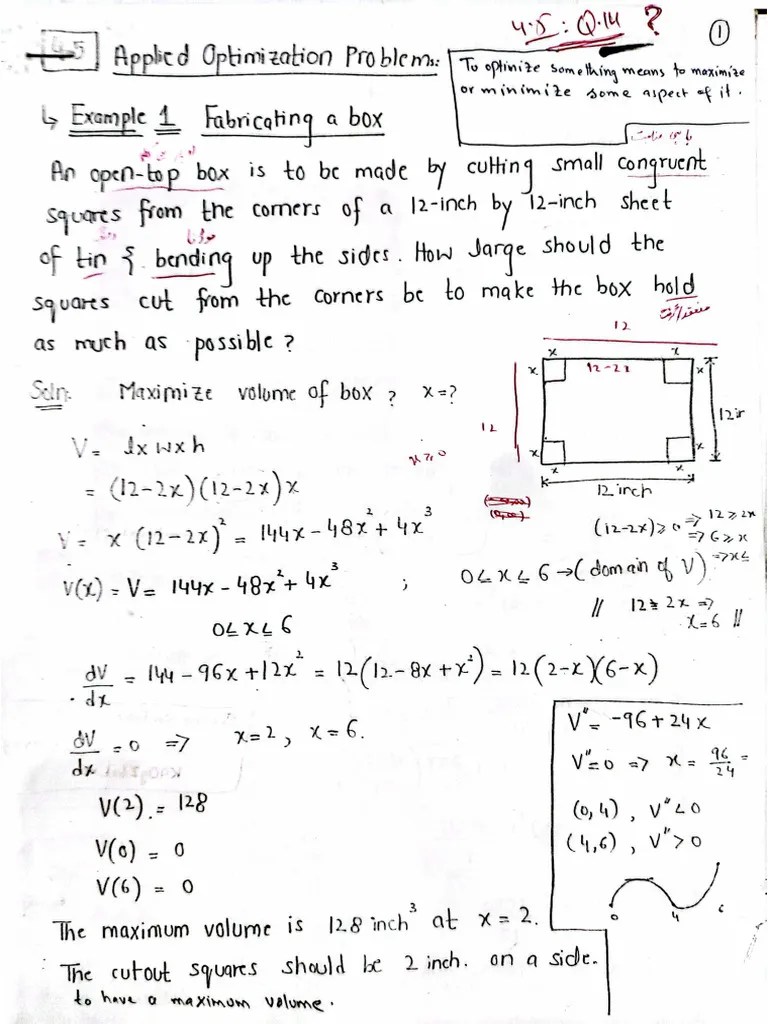 4.5 : Q.14 ?
1
4.5 Applied Optimization Problems:
To optimize something means to maximize
or minimize some aspect of it.
↳ Example 1 Fabricating a box
An open-top box is to be made by cutting small congruent
squares from the corners of a 12-inch by 12-inch sheet
of tin & bending up the sides. How large should the
squares cut from the corners be to make the box hold
as much as possible?
12
x x
x 12-2x x
12
12in
x x
x x
12 inch
Soln: Maximize volume of box? x=?
V = l x w x h
x ≥ 0
= (12-2x)(12-2x)x
(12-2x) ≥ 0 => 12 ≥ 2x
=> 6 ≥ x
=> x ≤
V = x (12-2x)² = 144x - 48x² + 4x³
V(x) = V = 144x - 48x² + 4x³ ; 0 ≤ x ≤ 6 → (domain of V)
// 12 = 2x =>
x = 6 //
0 ≤ x ≤ 6
dV/dx = 144 - 96x + 12x² = 12(12 - 8x + x²) = 12(2-x)(6-x)
dV/dx = 0 => x = 2, x = 6.
V(2) = 128
V(0) = 0
V(6) = 0
V" = -96 + 24x
V" = 0 => x = 96/24 =
(0, 4), V" < 0
(4, 6), V" > 0
0 4 6
The maximum volume is 128 inch³ at x = 2.
The cutout squares should be 2 inch. on a side.
to have a maximum volume.